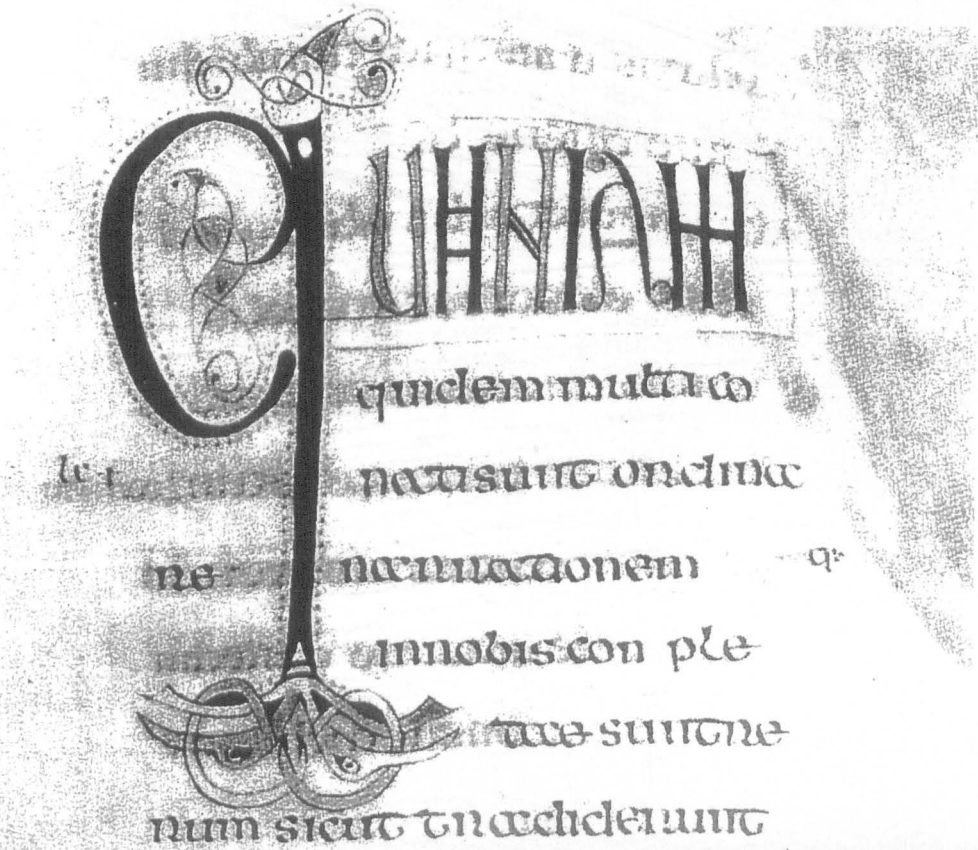 QUONIAM
quidem multi co
nati sunt ordina
re narrationem q:
in nobis con ple
tae sunt re
rum sicut tradiderunt